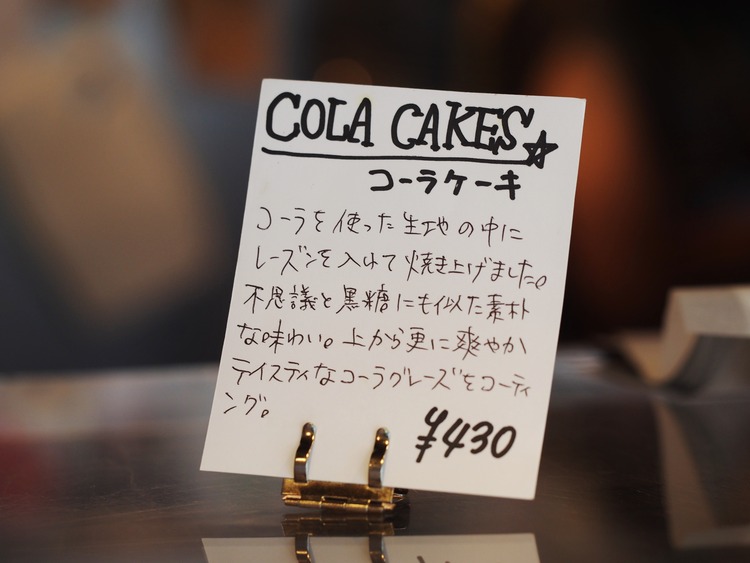 COLA CAKES☆
コーラケーキ
コーラを使った生地の中に
レーズンを入れて焼き上げました。
不思議と黒糖にも似た素朴
な味わい。上から更に爽やか
テイスティなコーラグレーズをコーティ
ング。
¥430